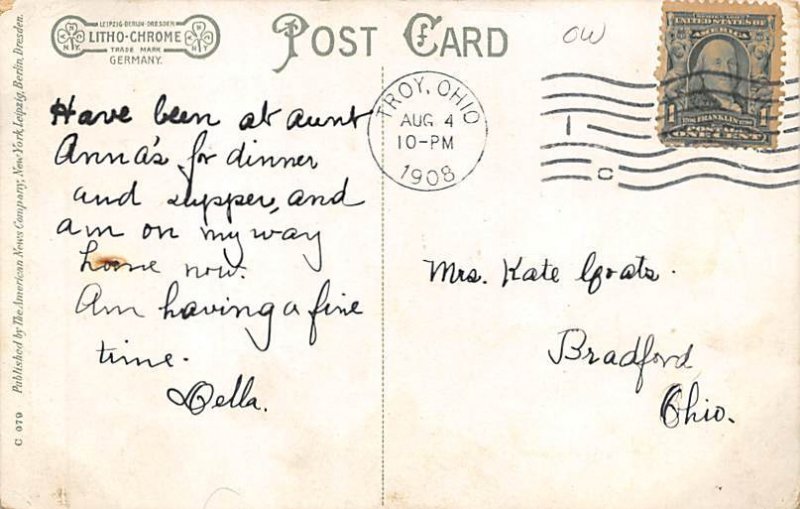 LEIPZIG·BERLIN·DRESDEN
LITHO-CHROME
TRADE MARK
GERMANY.
POST CARD
OW
Have been at aunt
Anna's for dinner
and supper, and
am on my way
home now.
Am having a fine
time.
Della.
TROY, OHIO
AUG 4
10-PM
1908
1
C
UNITED STATES OF
AMERICA
1 FRANKLIN 1
ONE CENT
Mrs. Kate
Bradford
Ohio.
C 079 Published by The American News Company, New York, Leipzig, Berlin, Dresden.